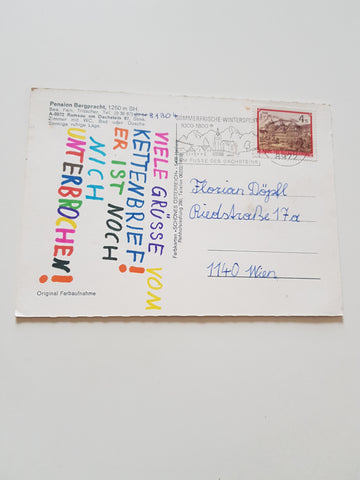 Pension Bergpracht, 1250 m SH.
Bes. Fam. Tritscher, Tel.
A-8972 Ramsau am Dachstein 87,
Zimmer mit WC, Bad oder Dusche
Sonnige ruhige Lage.
VIELE GRÜSSE VOM
KETTENBRIEF!
ER IST NOCH
NICH
UNTERBROCHEN!
Original Farbaufnahme
SOMMERFRISCHE-WINTERSPORT
AM FUSSE DES DACHSTEINS
4 S
Florian Döpfl
Riedstraße 17a
1140 Wien